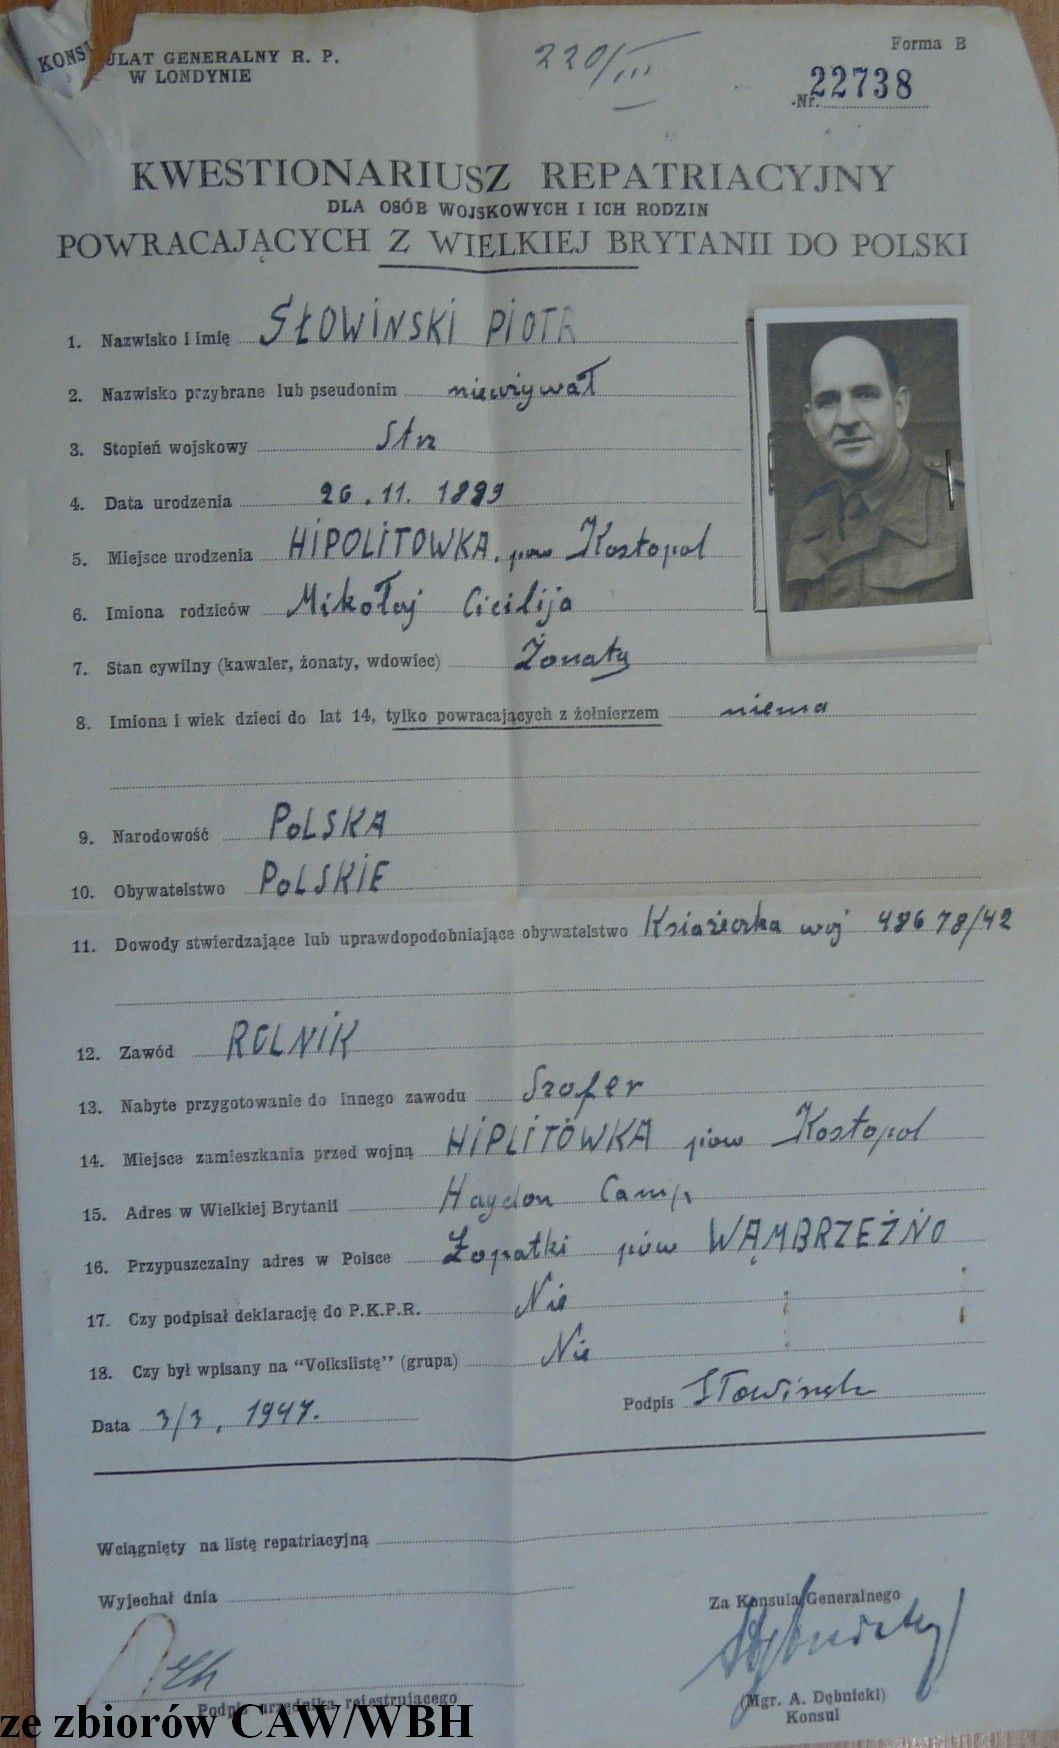 KONSULAT GENERALNY R. P.
W LONDYNIE
220/III
Forma B
Nr. 22738
KWESTIONARIUSZ REPATRIACYJNY
DLA OSÓB WOJSKOWYCH I ICH RODZIN
POWRACAJĄCYCH Z WIELKIEJ BRYTANII DO POLSKI
1. Nazwisko i imię SŁOWIŃSKI PIOTR
2. Nazwisko przybrane lub pseudonim nieużywał
3. Stopień wojskowy Str
4. Data urodzenia 26.11.1899
5. Miejsce urodzenia HIPOLITOWKA. pow Kostopol
6. Imiona rodziców Mikołaj Cicilija
7. Stan cywilny (kawaler, żonaty, wdowiec) Żonaty
8. Imiona i wiek dzieci do lat 14, tylko powracających z żołnierzem niema
9. Narodowość POLSKA
10. Obywatelstwo POLSKIE
11. Dowody stwierdzające lub uprawdopodobniające obywatelstwo Książeczka woj 48678/42
12. Zawód ROLNIK
13. Nabyte przygotowanie do innego zawodu Szofer
14. Miejsce zamieszkania przed wojną HIPLITÓWKA pow Kostopol
15. Adres w Wielkiej Brytanii Haydon Camp
16. Przypuszczalny adres w Polsce Łopatki pów WĄMBRZEŹNO
17. Czy podpisał deklarację do P.K.P.R. Nie
18. Czy był wpisany na "Volkslistę" (grupa) Nie
Data 3/3, 1947. Podpis Słowiński
Wciągnięty na listę repatriacyjną
Wyjechał dnia
Za Konsula Generalnego
Podpis urzędnika rejestrującego
(Mgr. A. Dębnicki)
Konsul
ze zbiorów CAW/WBH